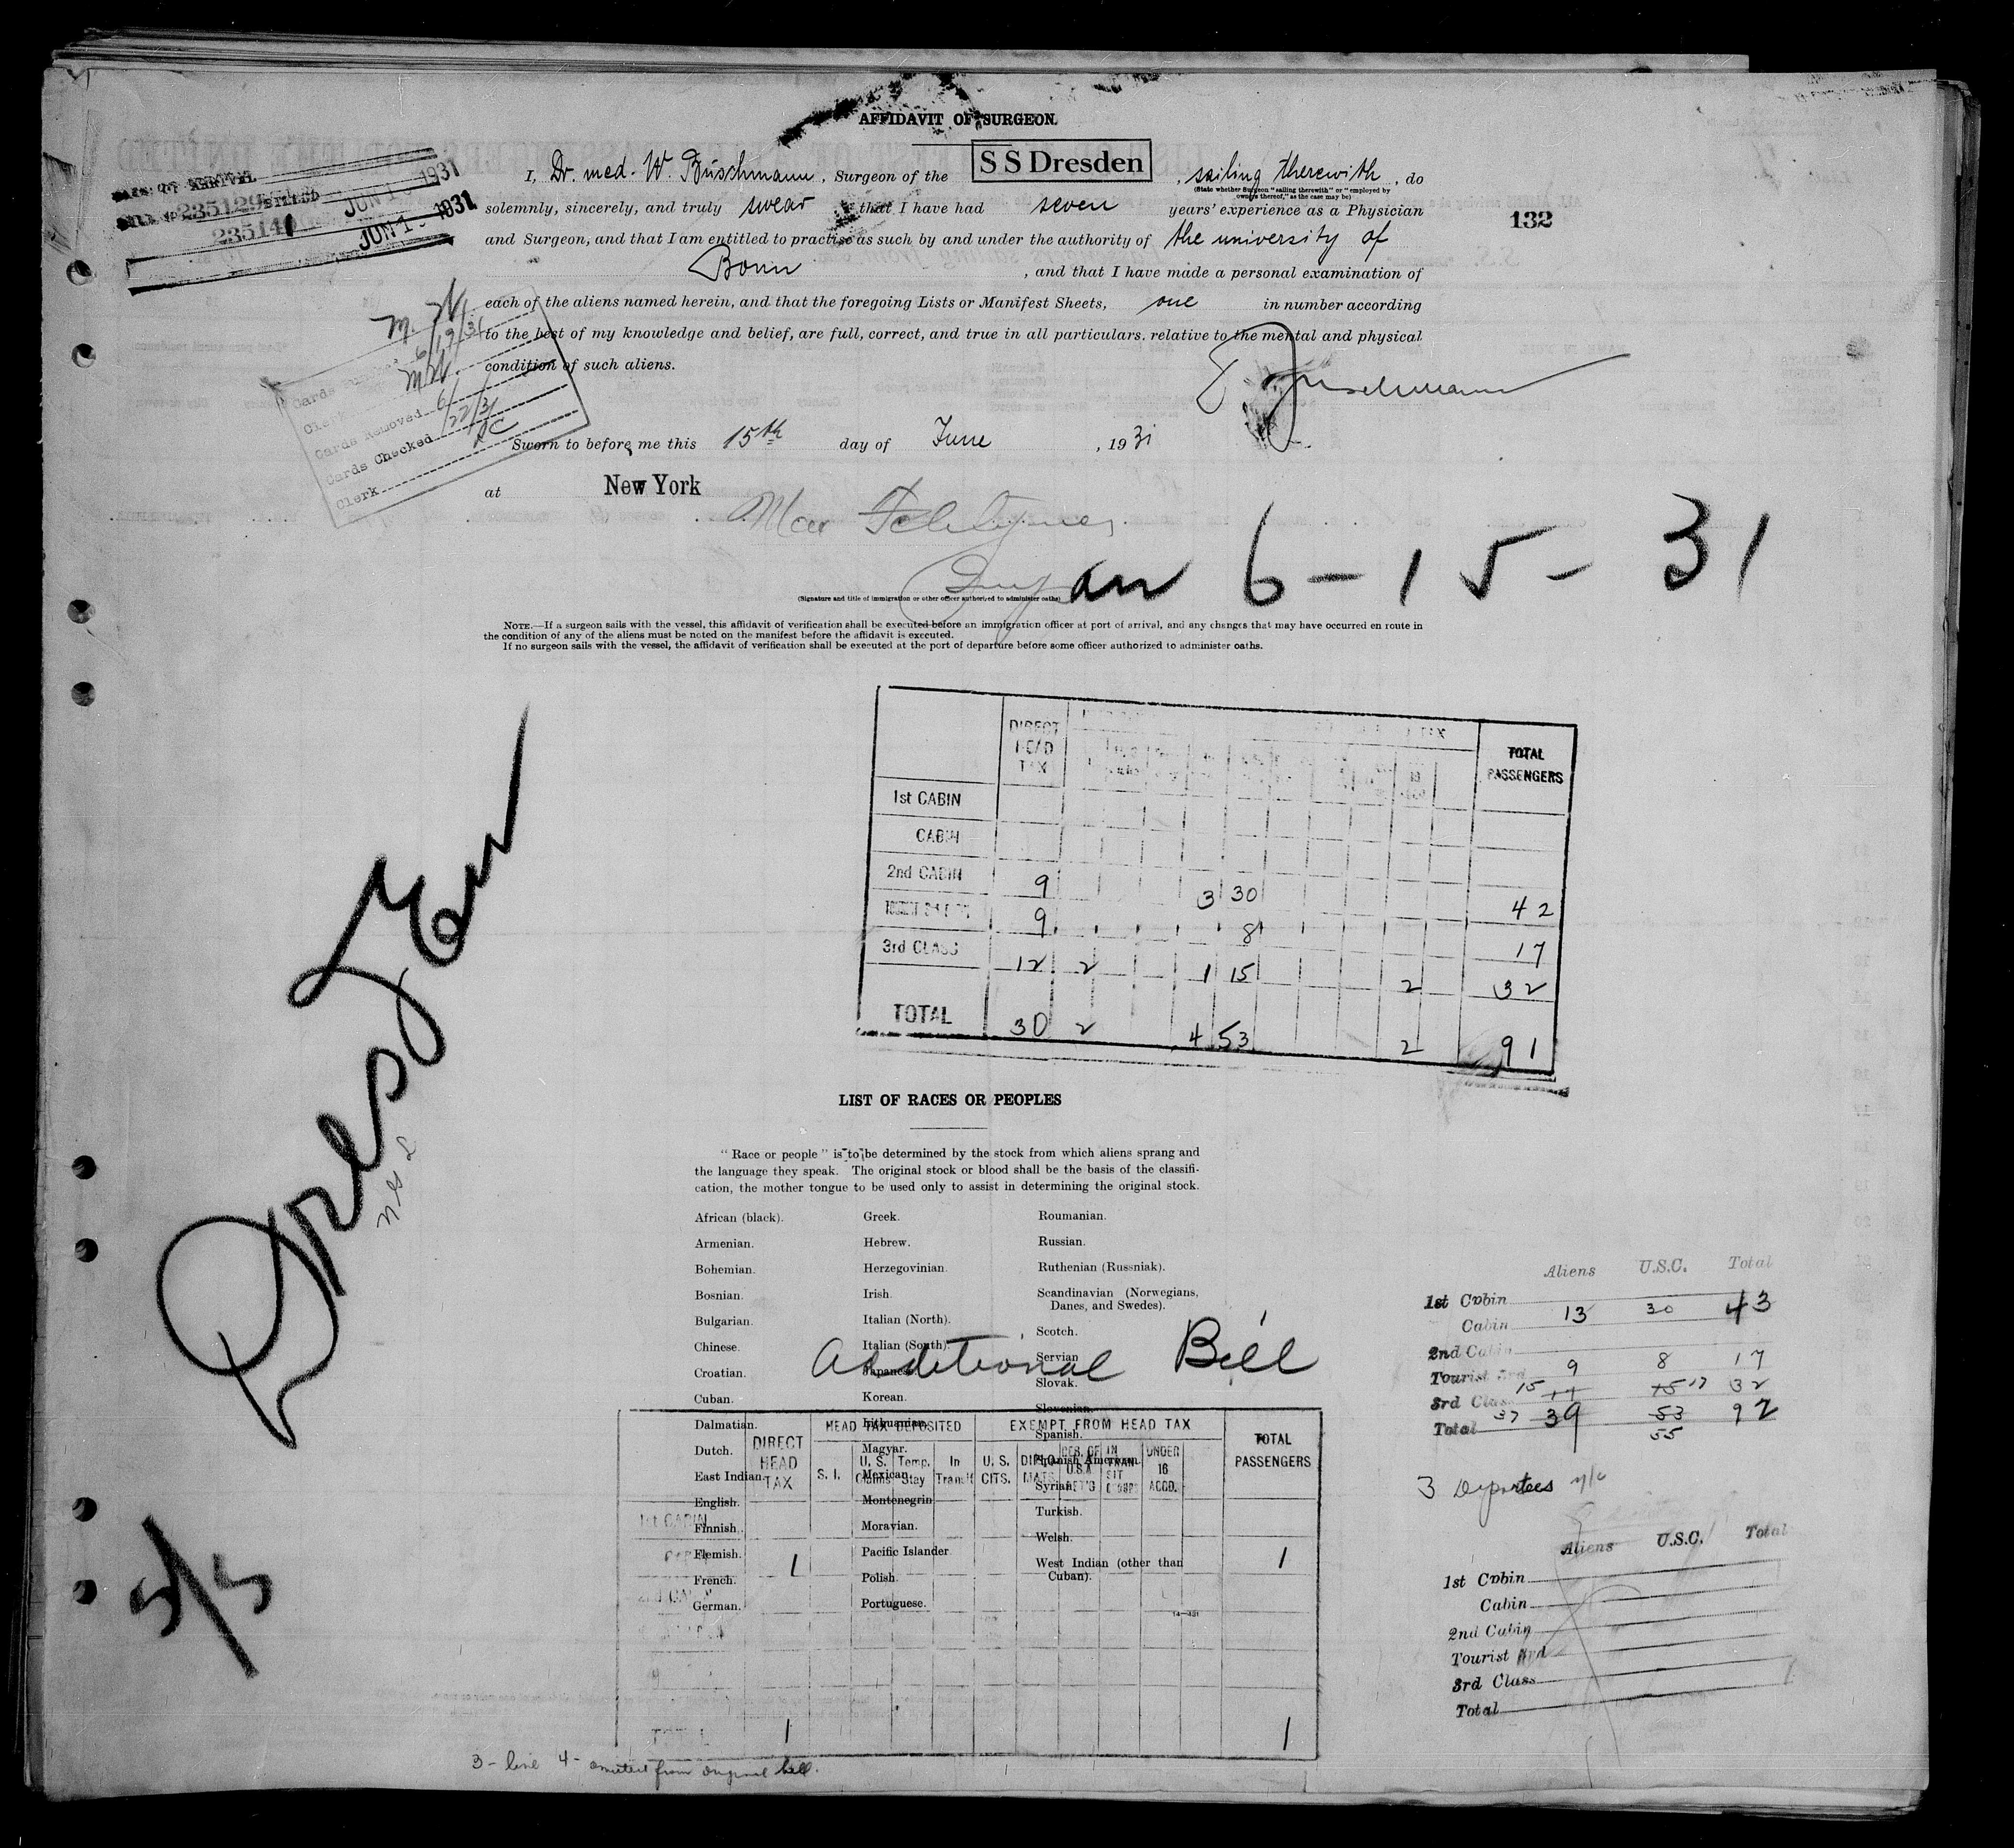 AFFIDAVIT OF SURGEON
I, Dr. med. W. Büschmann, Surgeon of the SS Dresden, sailing therewith, do
(State whether Surgeon "sailing therewith" or "employed by owners thereof," as the case may be)
solemnly, sincerely, and truly swear that I have had seven years' experience as a Physician
and Surgeon, and that I am entitled to practise as such by and under the authority of the university of
Bonn, and that I have made a personal examination of
each of the aliens named herein, and that the foregoing Lists or Manifest Sheets, one in number according
to the best of my knowledge and belief, are full, correct, and true in all particulars. relative to the mental and physical
condition of such aliens.
132
235129
JUN 1 1931
JUN 15 1931
M. N.
6/19/31
Clerk
Cards Removed 6/22/31
Cards Checked
Clerk
Sworn to before me this 15th day of June, 1931
at New York
an 6-15-31
(Signature and title of immigration or other officer authorized to administer oaths)
NOTE.—If a surgeon sails with the vessel, this affidavit of verification shall be executed before an immigration officer at port of arrival, and any changes that may have occurred en route in
the condition of any of the aliens must be noted on the manifest before the affidavit is executed.
If no surgeon sails with the vessel, the affidavit of verification shall be executed at the port of departure before some officer authorized to administer oaths.
DIRECT HEAD TAX TOTAL PASSENGERS
1st CABIN
CABIN
2nd CABIN 9 3 30 42
9 8 17
3rd CLASS 12 2 1 15 2 32
TOTAL 30 2 4 53 2 91
Dresden
5/5
LIST OF RACES OR PEOPLES
"Race or people" is to be determined by the stock from which aliens sprang and
the language they speak. The original stock or blood shall be the basis of the classifi-
cation, the mother tongue to be used only to assist in determining the original stock.
African (black).
Armenian.
Bohemian.
Bosnian.
Bulgarian.
Chinese.
Croatian.
Cuban.
Dalmatian.
Dutch.
East Indian.
English.
Finnish.
Flemish.
French.
German.
Greek.
Hebrew.
Herzegovinian.
Irish.
Italian (North).
Italian (South).
Japanese.
Korean.
Lithuanian.
Magyar.
Mexican.
Montenegrin
Moravian.
Pacific Islander
Polish.
Portuguese.
Roumanian.
Russian.
Ruthenian (Russniak).
Scandinavian (Norwegians,
Danes, and Swedes).
Scotch.
Servian
Slovak.
Slovenian.
Spanish.
Spanish American.
Syrian.
Turkish.
Welsh.
West Indian (other than
Cuban).
14—431
Additional Bill
DIRECT HEAD TAX HEAD TAX DEPOSITED EXEMPT FROM HEAD TAX TOTAL PASSENGERS
S. I. U. S. Temp. Stay In Transit U. S. CITS. DIPLOMATS RES. OF U.S.A. RET'G IN TRANSIT UNDER 16 ACCD.
1st CABIN
1 1
TOTAL 1 1
3 - line 4 - omitted from original bill.
Aliens U.S.C. Total
1st Cabin
Cabin 13 30 43
2nd Cabin
Tourist 3rd 9 8 17
3rd Class 15 17 15 17 32
Total 37 39 53 92
55
3 Deportees n/c
Aliens U.S.C. Total
1st Cabin
Cabin
2nd Cabin
Tourist 3rd
3rd Class
Total